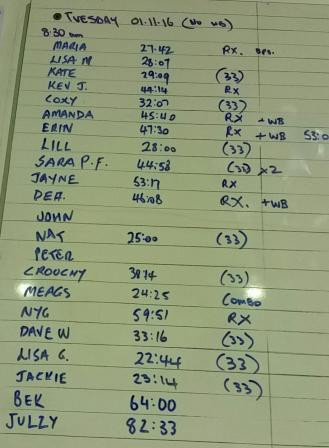 • TUESDAY 01.11.16 (No WB)
8:30 am
MARIA 27.42 RX.
LISA M 28:07
KATE 29:09 (33)
KEV J. 44:14 RX
COXY 32:07 (33)
AMANDA 45:40 RX + WB
ERIN 47:30 RX + WB 53:0
LILL 28:00 (33)
SARA P.F. 44:58 (33) x2
JAYNE 53:17 RX
DEA. 46:08 RX. +WB
JOHN
NAT 25:00 (33)
PETER
CROUCHY 3974 (33)
MEAGS 24:25 COMBO
NYG 59:51 RX
DAVE W 33:16 (33)
LISA G. 22:44 (33)
JACKIE 23:14 (33)
BEK 64:00
JULZY 82:33